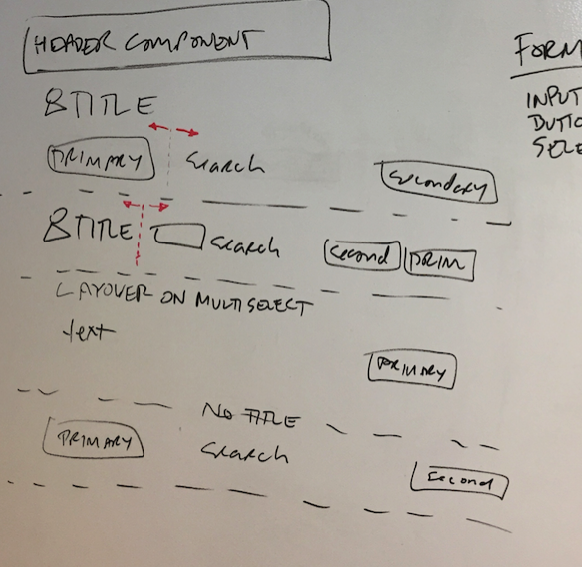 HEADER COMPONENT
8 TITLE
PRIMARY search secondary
8 TITLE search second PRIM
LAYOVER ON MULTISELECT
text
PRIMARY
NO TITLE
PRIMARY search second
FORM
INPUT
BUTTO
SELE